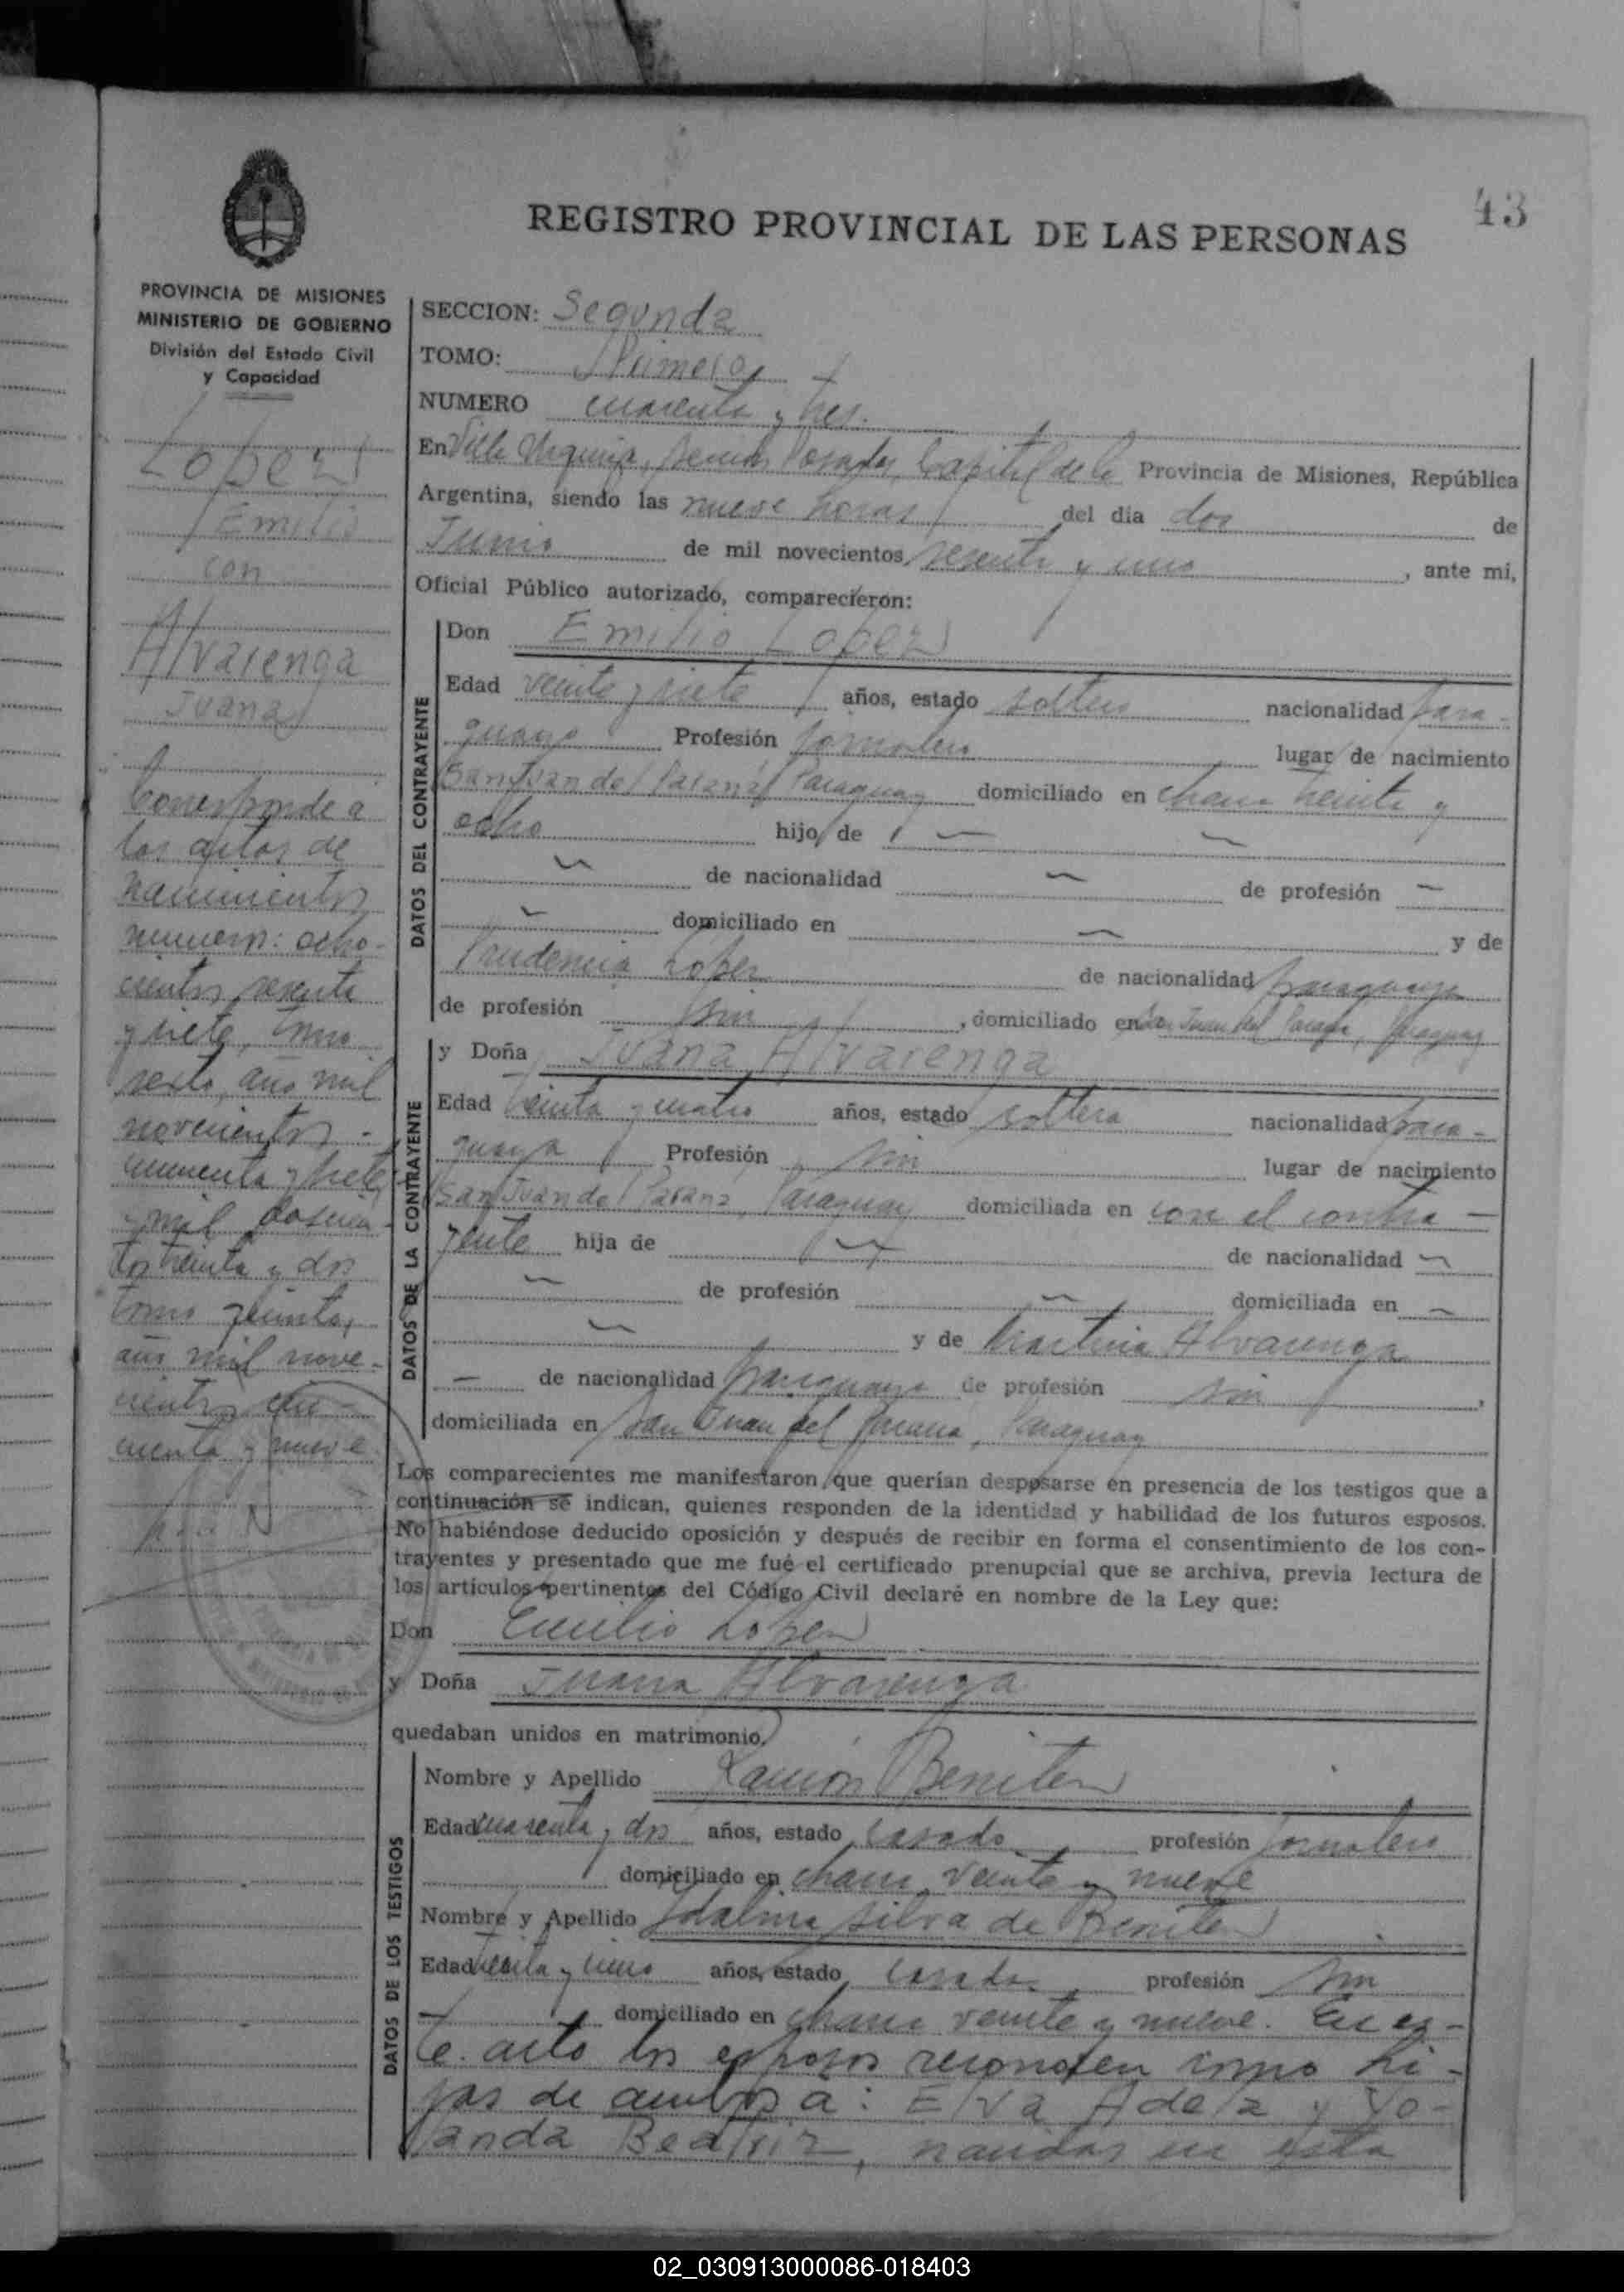 43
REGISTRO PROVINCIAL DE LAS PERSONAS
PROVINCIA DE MISIONES
MINISTERIO DE GOBIERNO
División del Estado Civil
y Capacidad
Lopez
Emilio
con
Alvarenga
Juana
Corresponde a
las actas de
nacimientos
número: ocho-
cientos sesenta
y siete, tomo
sexto, año mil
novecientos
cincuenta y siete,
y mil doscien-
tos treinta y dos
tomo quinto,
año mil nove-
cientos cin-
cuenta y nueve
SECCION: Segunda
TOMO: Primero
NUMERO cuarenta y tres.
En Villa Urquiza, Sección Posadas, Capital de la Provincia de Misiones, República
Argentina, siendo las nueve horas del día dos de
Junio de mil novecientos sesenta y uno, ante mi,
Oficial Público autorizado, comparecieron:
DATOS DEL CONTRAYENTE
Don Emilio Lopez
Edad veinte y siete años, estado soltero nacionalidad para-
guayo Profesión jornalero lugar de nacimiento
San Juan del Paraná, Paraguay domiciliado en chacra treinta y
ocho hijo de — —
— de nacionalidad — de profesión —
— domiciliado en — y de
Prudencia Lopez de nacionalidad paraguaya
de profesión sin, domiciliado en San Juan del Paraná, Paraguay
DATOS DE LA CONTRAYENTE
y Doña Juana Alvarenga
Edad veinte y cuatro años, estado soltera nacionalidad para-
guaya Profesión sin lugar de nacimiento
San Juan del Paraná, Paraguay domiciliada en con el contra-
yente hija de — de nacionalidad —
— de profesión — domiciliada en —
— y de Martina Alvarenga
— de nacionalidad paraguaya de profesión sin,
domiciliada en San Juan del Paraná, Paraguay
Los comparecientes me manifestaron que querían desposarse en presencia de los testigos que a
continuación se indican, quienes responden de la identidad y habilidad de los futuros esposos.
No habiéndose deducido oposición y después de recibir en forma el consentimiento de los con-
trayentes y presentado que me fué el certificado prenupcial que se archiva, previa lectura de
los artículos pertinentes del Código Civil declaré en nombre de la Ley que:
Don Emilio Lopez
y Doña Juana Alvarenga
quedaban unidos en matrimonio.
DATOS DE LOS TESTIGOS
Nombre y Apellido Ramón Benitez
Edad cuarenta y dos años, estado casado profesión jornalero
domiciliado en chacra veinte y nueve
Nombre y Apellido Idalina Silva de Benitez
Edad treinta y uno años, estado casada profesión sin
domiciliado en chacra veinte y nueve. En es-
te acto los esposos reconocen como hi-
jas de ambos a: Elva Adela y Yo-
landa Beatriz, nacidas en esta
02_030913000086-018403